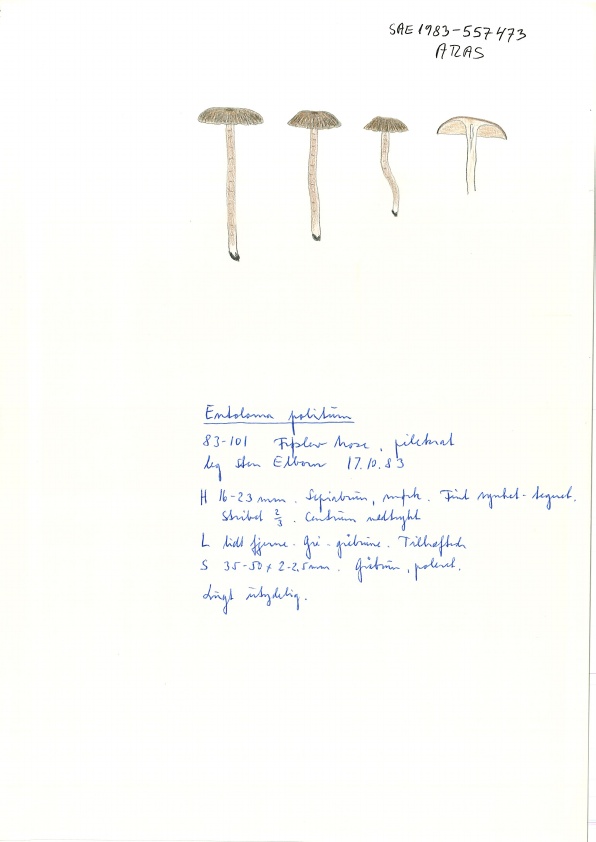 SAE 1983-557473
ATLAS
Entoloma politum
83-101 mose, pilekrat
leg Sten Elborn 17.10.83
H 16-23 mm. Sepiabrun, mørk. Fint rynket-
Stribet 2/3. Centrum nedtrykt
L lidt fjerne. Grå-gråbrune. Tilhæftede
S 35-50 x 2-2,5 mm. Gråbrun, poleret.
Lugt utydelig.